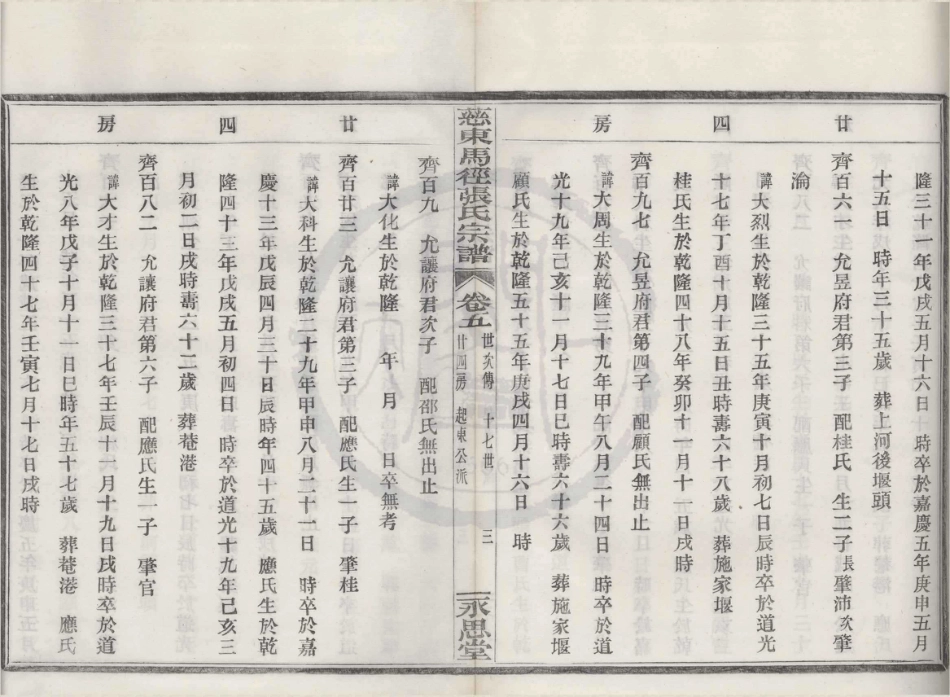 廿四房
隆三十一年戊戌五月十六日　時卒於嘉慶五年庚申五月
十五日　時年三十五歲　葬上河後堰頭
齊百六一　允昱府君第三子　配桂氏　生二子　長肇沛　次肇
淪
諱大烈生於乾隆三十五年庚寅十月初七日辰時卒於道光
十七年丁酉十月十五日丑時壽六十八歲　葬施家堰
桂氏生於乾隆四十八年癸卯十一月十一日戌時
齊百九七　允昱府君第四子　配顧氏無出止
諱大周生於乾隆三十九年甲午八月二十四日　時卒於道
光十九年己亥十一月十七日巳時壽六十六歲　葬施家堰
顧氏生於乾隆五十五年庚戌四月十六日　時
慈東馬徑張氏宗譜　卷五　世次傳　十七世　廿四房　起東公派　三　永思堂
廿四房
齊百九　允讓府君次子　配邵氏無出止
諱大化生於乾隆　年　月　日卒無考
齊百廿三　允讓府君第三子　配應氏生一子　肇桂
諱大科生於乾隆二十九年甲申八月二十一日　時卒於嘉
慶十三年戊辰四月三十日辰時年四十五歲　應氏生於乾
隆四十三年戊戌五月初四日　時卒於道光十九年己亥三
月初二日戌時壽六十二歲　葬菴港
齊百八二　允讓府君第六子　配應氏生一子　肇官
諱大才生於乾隆三十七年壬辰十六月十九日戌時卒於道
光八年戊子十月十一日巳時年五十七歲　葬菴港　應氏
生於乾隆四十七年壬寅七月十七日戌時